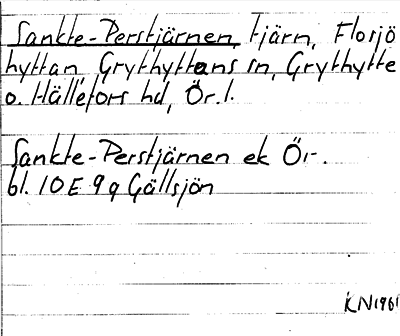 Sankte-Perstjärnen, tjärn, Florsjö
hyttan, Grythyttans sn, Grythytte
o. Hällefors hd, Ör. l.
Sankte-Perstjärnen ek Ör.
bl. 10E 9g Gällsjön
KN 1961